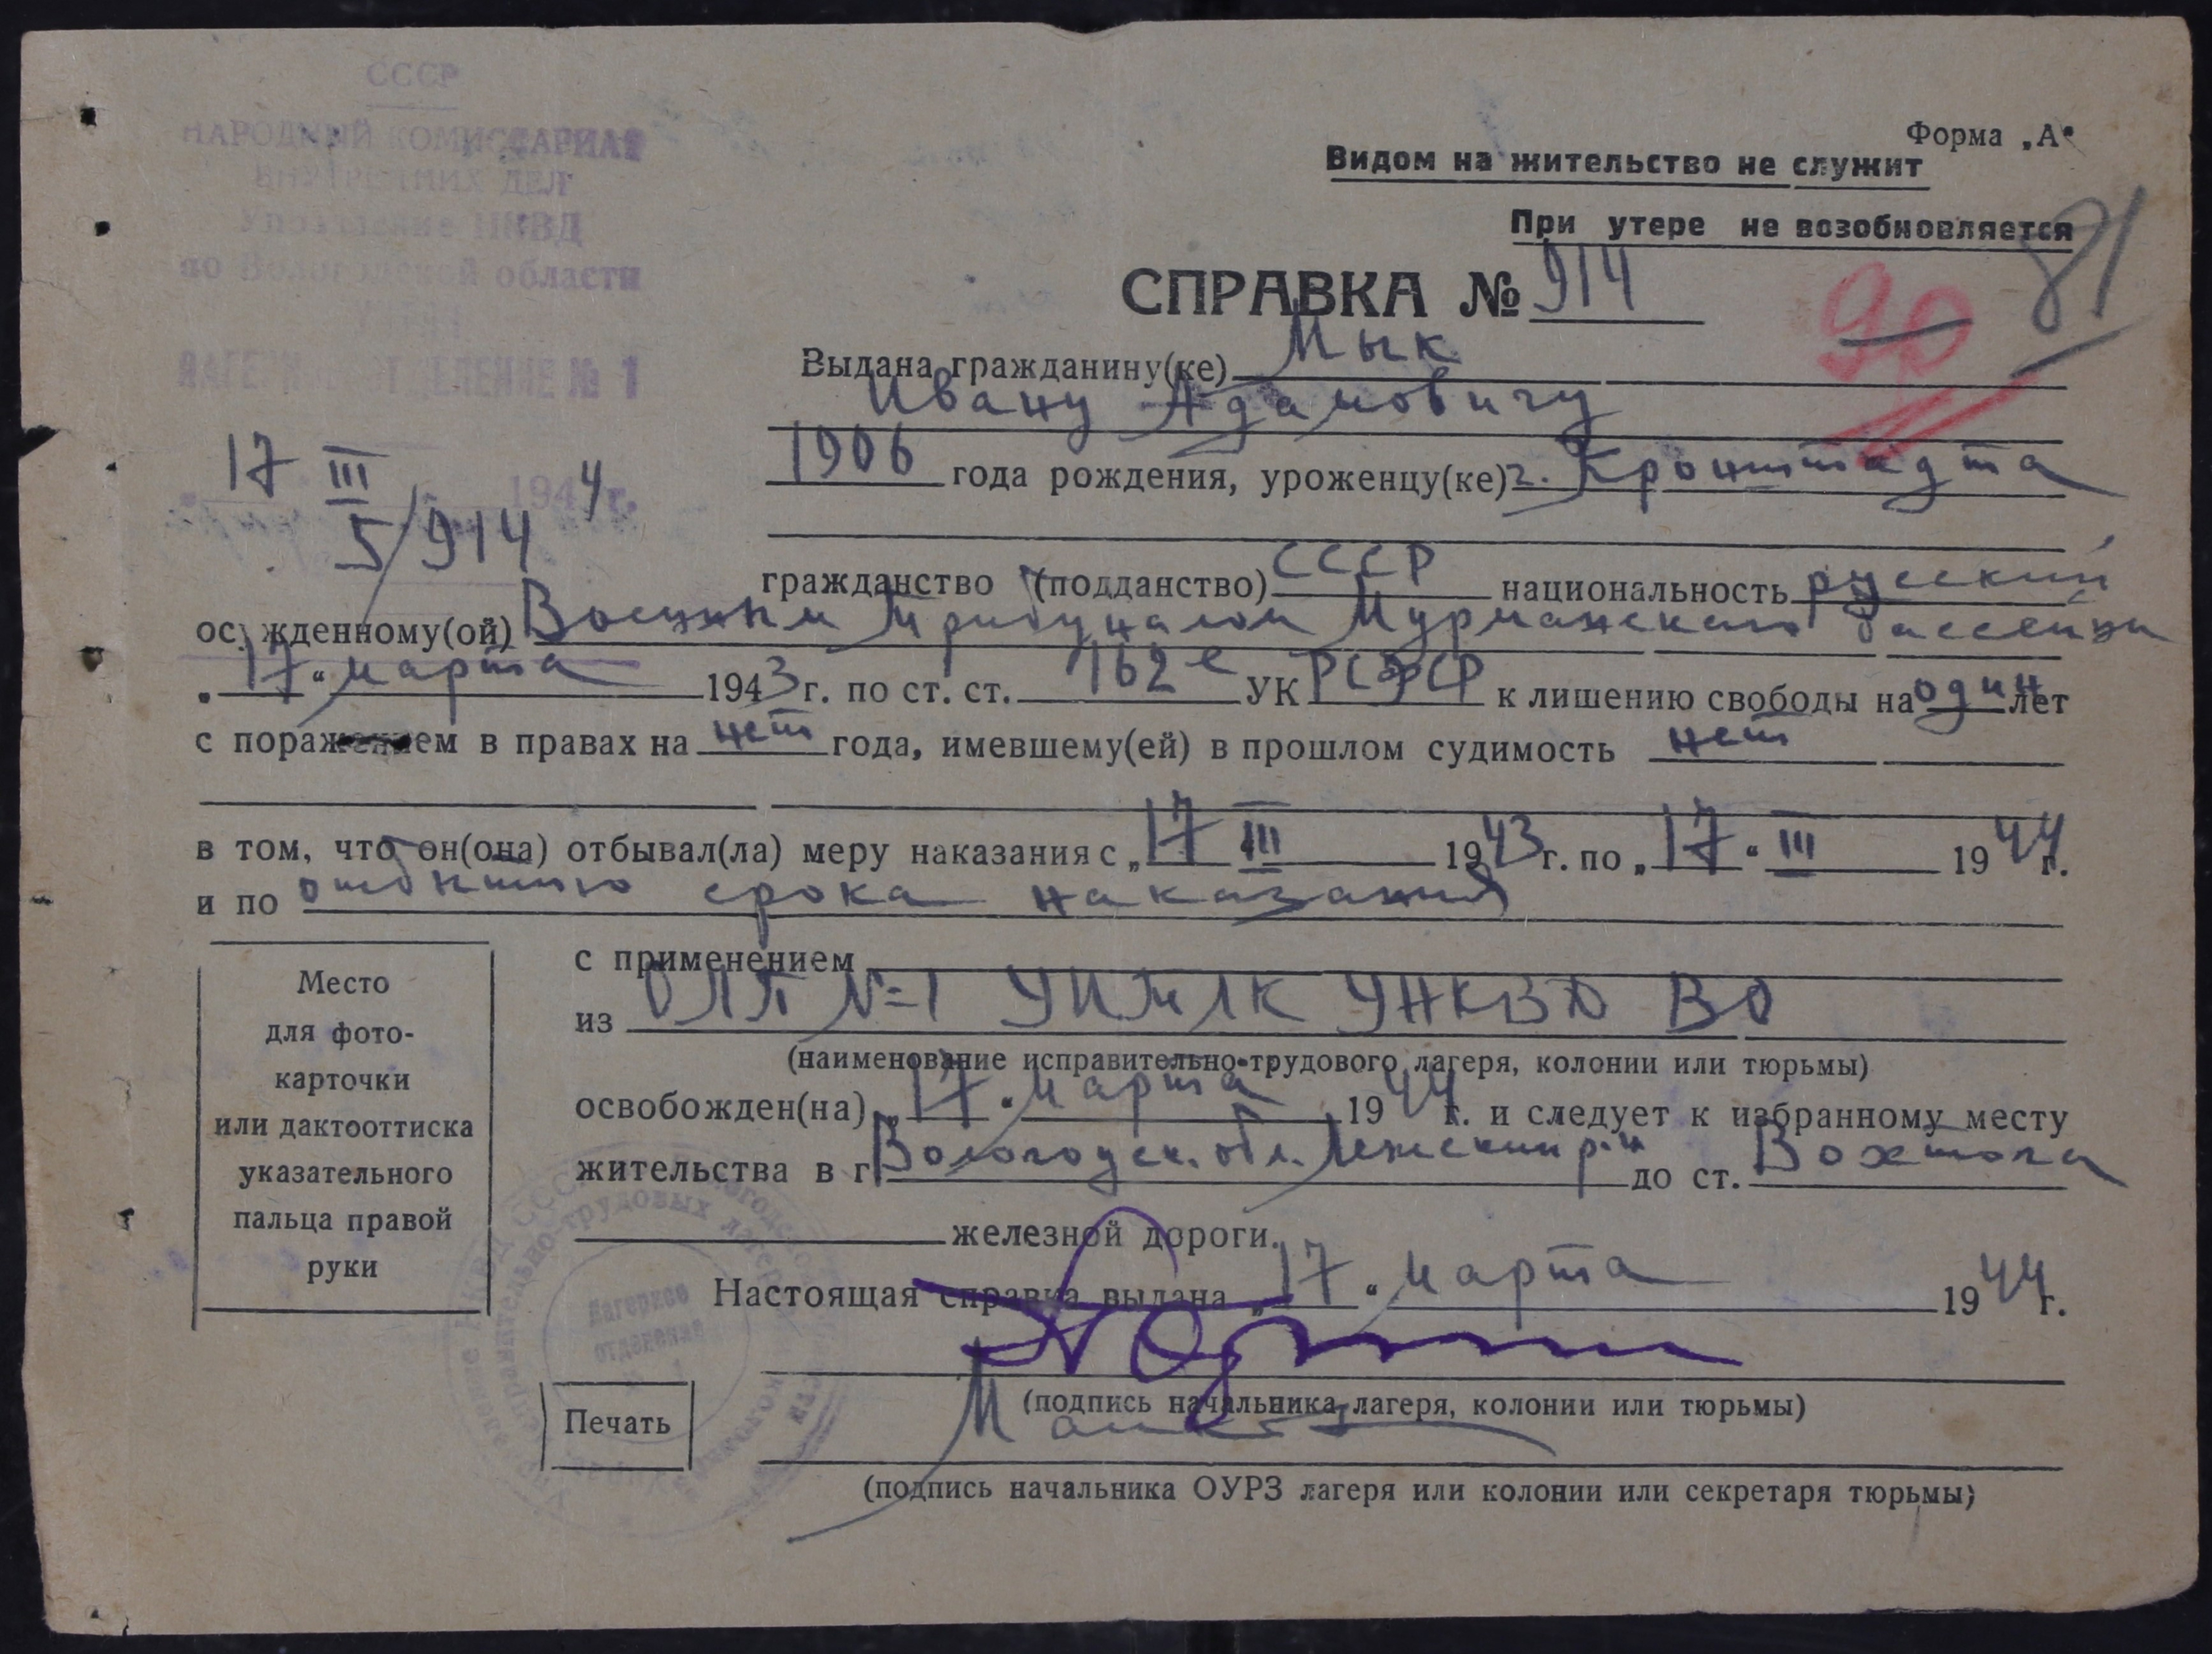 СССР
НАРОДНЫЙ КОМИССАРИАТ
ВНУТРЕННИХ ДЕЛ
Управление НКВД
по Вологодской области
ЛАГЕРНОЕ ОТДЕЛЕНИЕ № 1
17 III 1944 г.
5/914
Форма „А“
Видом на жительство не служит
При утере не возобновляется
81
90
СПРАВКА № 914
Выдана гражданину(ке) Мык
Ивану Адамовичу
1906 года рождения, уроженцу(ке) г. Кронштадта
гражданство (подданство) СССР национальность русский
осужденному(ой) Военным Трибуналом Мурманского бассейна
„17“ марта 1943 г. по ст. ст. 162 е УК РСФСР к лишению свободы на один лет
с поражением в правах на нет года, имевшему(ей) в прошлом судимость нет
в том, что он(она) отбывал(ла) меру наказания с „17 III 1943 г. по „17“ III 1944 г.
и по отбытию срока наказания
с применением
из ОЛП №1 УИТЛК УНКВД ВО
(наименование исправительно-трудового лагеря, колонии или тюрьмы)
освобожден(на) „17“ марта 1944 г. и следует к избранному месту
жительства в г Вологодск. обл. Лежский р-н до ст. Вохтога
железной дороги.
Настоящая справка выдана „17“ марта 1944 г.
(подпись начальника лагеря, колонии или тюрьмы)
(подпись начальника ОУРЗ лагеря или колонии или секретаря тюрьмы)
Место
для фото-
карточки
или дактооттиска
указательного
пальца правой
руки
Печать
Лагерное
отделение